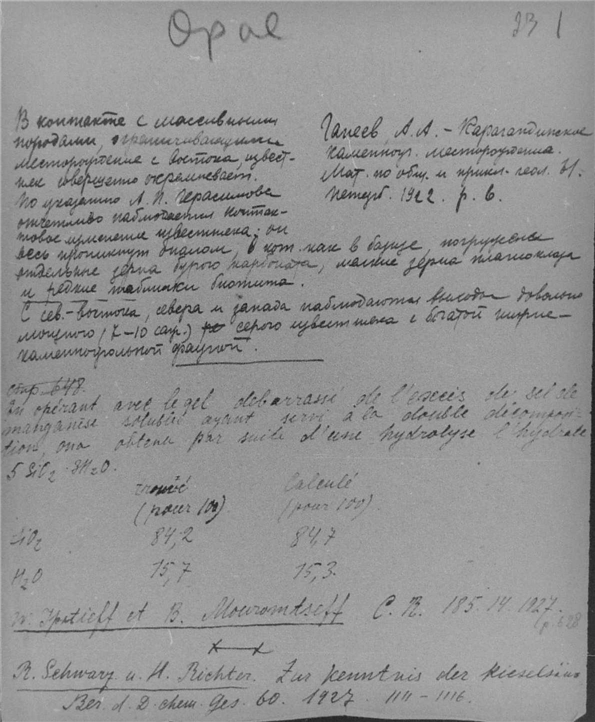 Opal
23 1
В контакте с массивными
породами, ограничивающими
месторождение с востока, извест-
няк совершенно окремневает.
По указанию А. П. Герасимова
отчетливо наблюдается контак-
товое изменение известняка: он
весь проникнут опалом, в кот. как в базисе, погружены
отдельные зерна бурого карбоната, мелкие зерна плагиоклаза
и редкие таблички биотита.
С сев.-востока, севера и запада наблюдаются выходы довольно
мощного (7–10 саж.) серого известняка с богатой нижне-
каменноугольной фауной.
Гапеев, А. А. – Карагандинское
каменноуг. месторождение.
Мат. по общ. и прикл. геол. 31.
Петерб. 1922. p. 6.
стр 648
En opérant avec le gel débarrassé de l'excès de sel de
manganèse soluble ayant servi à la double décomposi-
tion, on a obtenu par suite d'une hydrolyse l'hydrate
5 SiO2 · 3H2O.
trouvé Calculé
(pour 100) (pour 100)
SiO2 84,2 84,7
H2O 15,7 15,3.
W. Ipatieff et B. Mouromtseff C. R. 185. 14. 1927.
(p. 648
R. Schwarz u. H. Richter. Zur Kenntnis der Kieselsäure
Ber. d. D. chem. Ges. 60. 1927. 1111–1116.